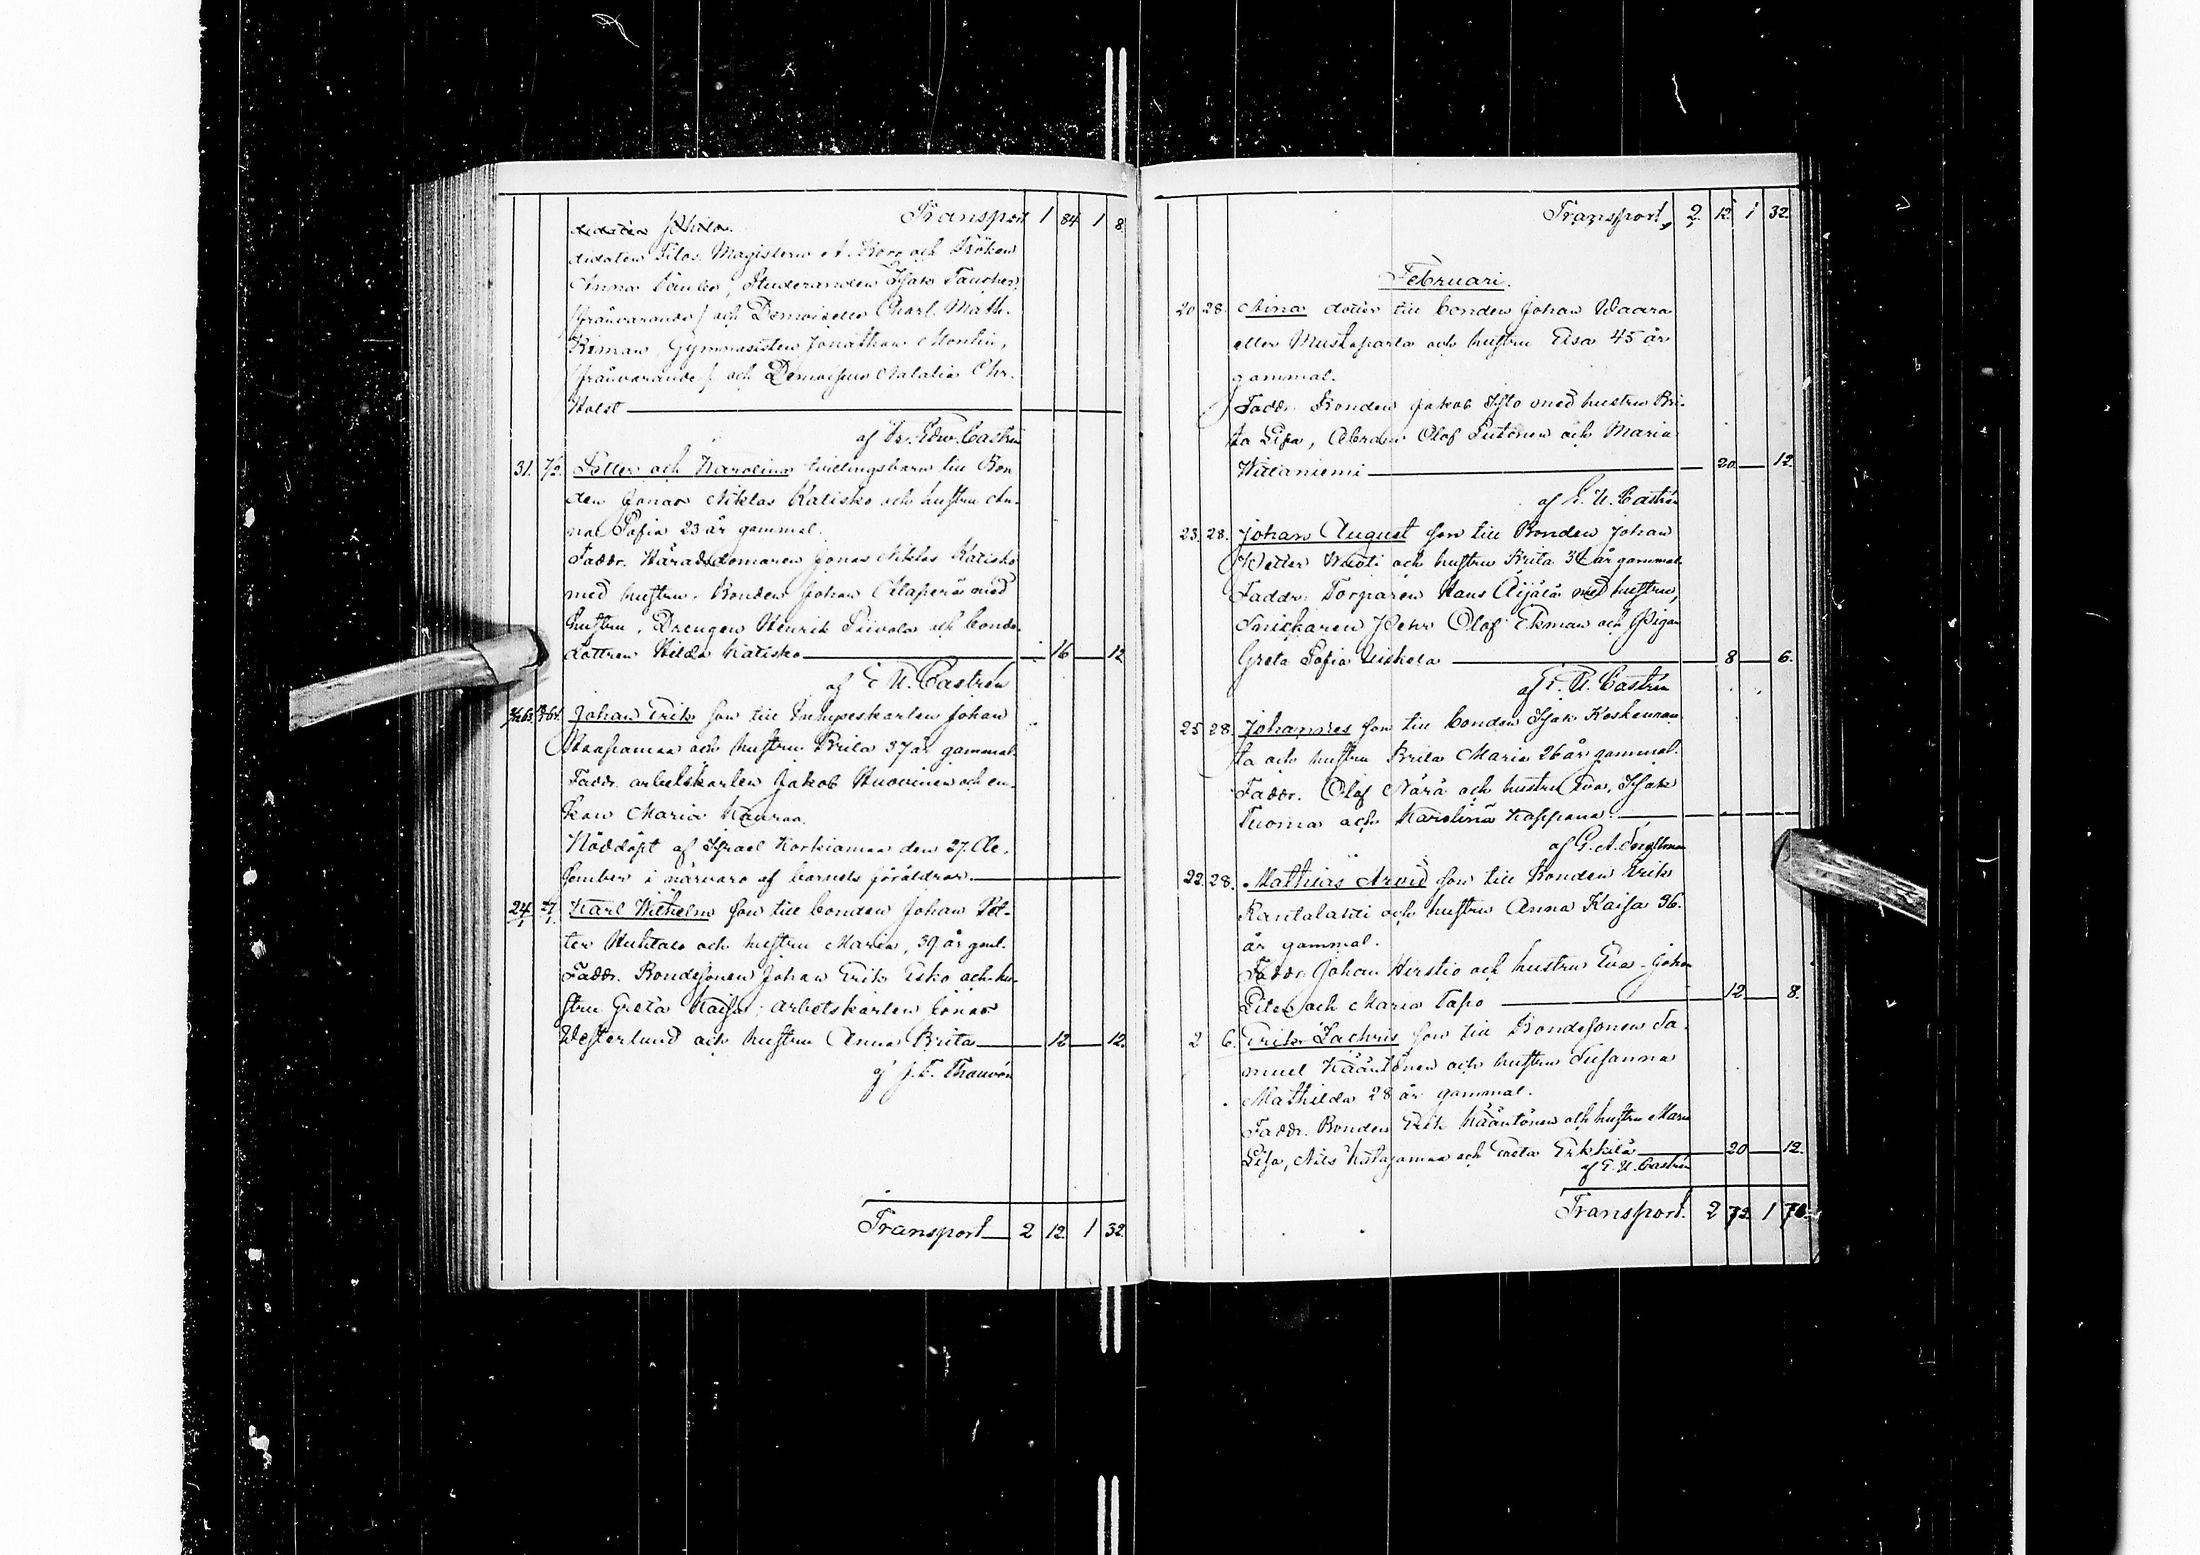 Transport 1 84 1 8.
didaten Filos. Magistern A. Borg och Fröken
Anna Cajan, Studeranden Isak Fancher,
/frånvarande/ och Demoiselle Charl. Math.
Riman, Gymnasisten Jonathan Montin,
/frånvarande/ och Demoiselle Natalia Chr.
Holst
af Fr. Edw. Castrén
31. 7/2. Petter och Karolina tvillingsbarn till Bon
den Jonas Niklas Katisko och hustru An-
na Sofia 23 år gammal.
Faddr. Häradsdomaren Jonas Niklas Katisko
med hustru, Bonden Johan Alaperä med
hustru, Drengen Henrik Piivola och bonde-
dottren Hilda Katisko 16 12
af E. U. Castrén
Johan Erik son till Inhyseskarlen Johan
Maaspamaa och hustru Brita 37 år gammal.
Faddr. arbetskarlen Jakob Huovinen och en-
kan Maria Kauraa.
Nöddöpt af Israel Korkiamaa den 27. De-
sember i närvaro af barnets föräldrar.
24. Karl Wilhelm son till bonden Johan Pet-
ter Huhtala och hustru Maria, 39 år gml.
Faddr. Bondesonen Johan Erik Esko och hu-
stru Greta Kaisa, arbetskarlen Jonas
Westerlund och hustru Anna Brita 12 12.
af J. F. Thauvón
Transport 2 12. 1 32.
Transport, 2. 12. 1 32.
Februari.
20 28. Mina dotter till bonden Johan Waara
eller Mustaparta och hustru Elsa 45 år
gammal.
Faddr. Bonden Jakob Ylto med hustru Bri-
ta Lisa, Abram Olof Putonen och Maria
Witaniemi 20 12
af E. U. Castrén
23. 28. Johan August son till Bonden Johan
Petter Huoti och hustru Brita 34 år gammal
Faddr. Torparen Hans Äijälä med hustru,
Snickaren Pehr Olof Ekman och Pigan
Greta Sofia Uiskola 8 6.
af E. U. Castrén
25 28. Johannes son till bonden Isak Koskenran
ta och hustru Brita Maria 26 år gammal.
Faddr. Olof Närä och hustru Eva, Isak
Tuoma och Karolina Kassana.
af G. A. Snellman
22. 28. Mathias Arvid son till Bonden Erik
Rantalahti och hustru Anna Kaisa 36.
år gammal.
Faddr. Johan Hirstio och hustru Eva, Johan
Piten och Maria Tapo 12 8.
2 6. Erik Zachris son till Bondesonen Sa-
muel Kääntönen och hustru Susanna
Mathilda 28 år gammal.
Faddr. Bonden Erik Kääntönen och hustru Maria
Lisa, Nils Katajamaa och Greta Erkkilä 20 12.
af E. U. Castrén
Transport. 2 72. 1 70.